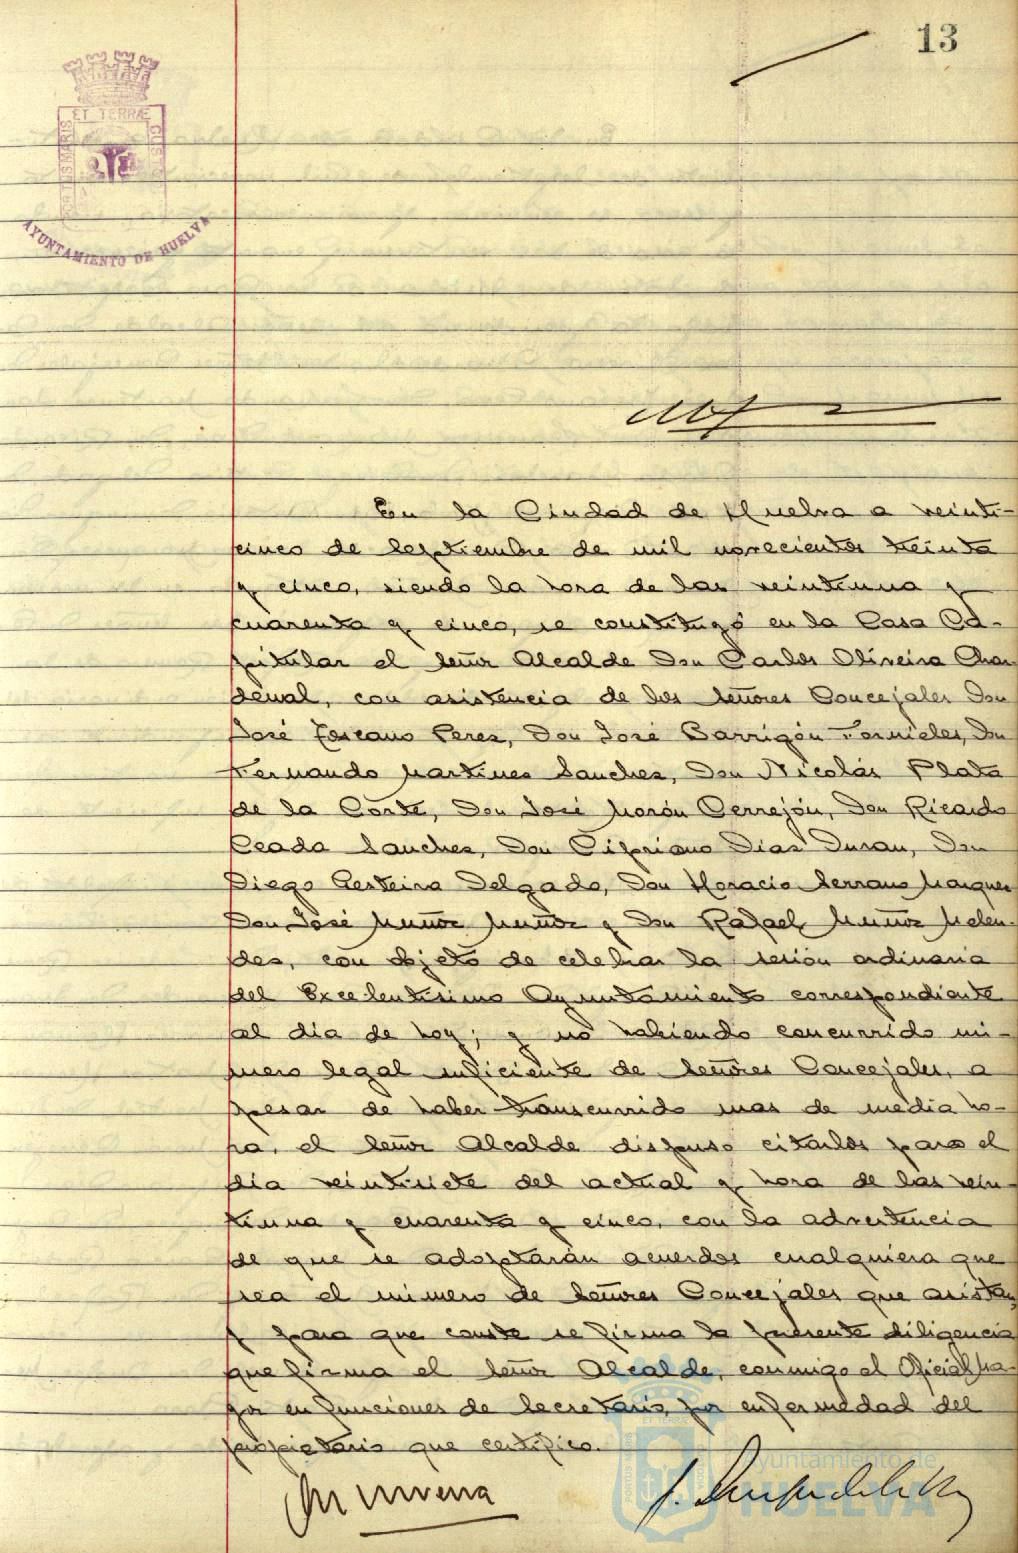 13
ET TERRÆ
AYUNTAMIENTO DE HUELVA
En la Ciudad de Huelva a veinti-
cinco de Septiembre de mil novecientos treinta
y cinco, siendo la hora de las veintiuna y
cuarenta y cinco, se constituyó en la Casa Ca-
pitular el Señor Alcalde Don Carlos Oliveira Cha-
denal, con asistencia de los Señores Concejales Don
José Toscano Perez, Don José Barrigón Fornieles, Don
Fernando Martinez Sanchez, Don Nicolás Plata
de la Corte, Don José Morón Cerrejón, Don Ricardo
Ceada Sanchez, Don Cipriano Diaz Duran, Don
Diego Delgado, Don Horacio Serrano Marquez
Don José Muñoz Muñoz y Don Rafael Muñoz Melen-
dez, con objeto de celebrar la sesión ordinaria
del Excelentísimo Ayuntamiento correspondiente
al dia de hoy; y no habiendo concurrido nú-
mero legal suficiente de Señores Concejales, a
pesar de haber transcurrido mas de media ho-
ra, el Señor Alcalde dispuso citarlos para el
dia veintisiete del actual y hora de las vein-
tiuna y cuarenta y cinco, con la advertencia
de que se adoptarán acuerdos cualquiera que
sea el número de Señores Concejales que asistan,
y para que conste se firma la presente diligencia
que firma el Señor Alcalde, conmigo el Oficial Ma-
yor en funciones de Secretario, por enfermedad del
propietario que certifico.
Ayuntamiento de
HUELVA